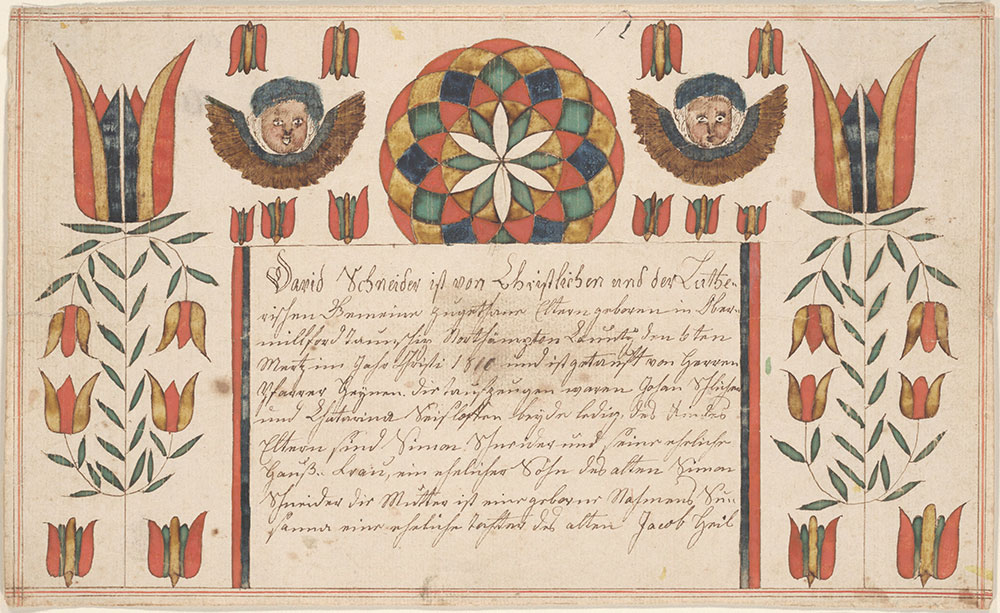 David Schneider ist von Christlichen und der Luthe-
rischen Gemeine zugethane Eltern geboren in Ober-
millford Taunschip Northampton Caunty den 6ten
Mertz im Jahr Christi 1810 und ist getauft von Herren
Pfarrer Geynen. die taufzeugen waren Josan
und Chatarina beyde ledig, des Kindes
Eltern sind Simon Schneider und seine ehrliche
Hauß-Frau, ein ehelicher Sohn des alten Simon
Schneider die Mutter ist eine geborne Nahmens Su-
sanna eine eheliche tochter des alten Jacob Heil